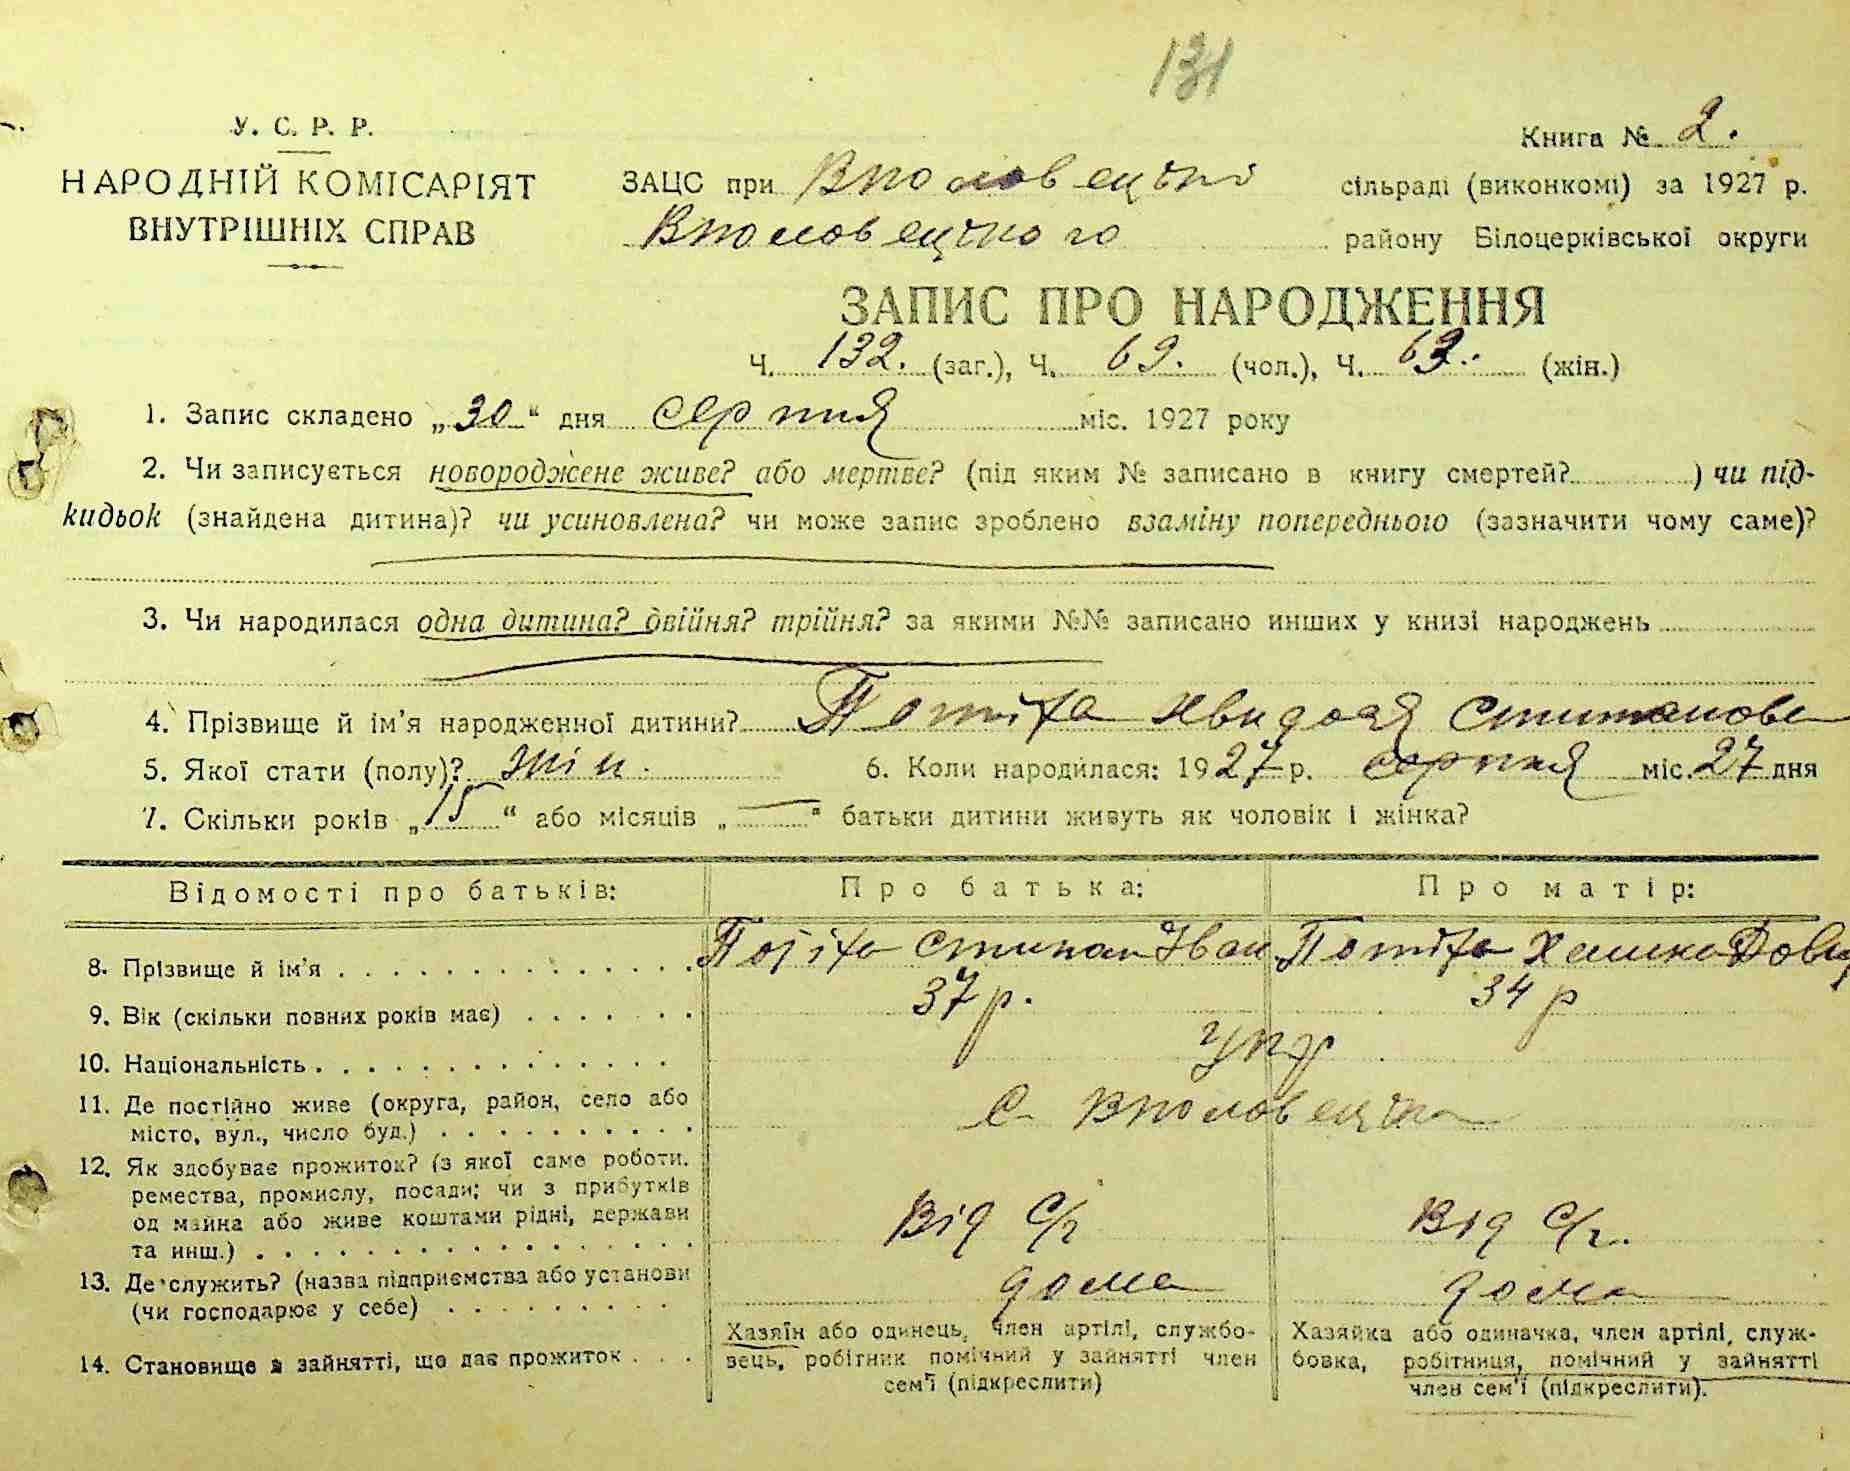 131
У. С. Р. Р.
НАРОДНІЙ КОМІСАРІЯТ
ВНУТРІШНІХ СПРАВ
Книга № 2.
ЗАЦС при Вполовецчкі сільраді (виконкомі) за 1927 р.
Вполовецчкого району Білоцерківської округи
ЗАПИС ПРО НАРОДЖЕННЯ
Ч. 132. (заг.), Ч. 69. (чол.), Ч. 63. (жін.)
1. Запис складено „30“ дня серпня міс. 1927 року
2. Чи записується новороджене живе? або мертве? (під яким № записано в книгу смертей? ) чи під-
кидьок (знайдена дитина)? чи усиновлена? чи може запис зроблено взаміну попереднього (зазначити чому саме)?
3. Чи народилася одна дитина? двійня? трійня? за якими №№ записано инших у книзі народжень
4. Прізвище й ім’я народженної дитини? Потіха Явидося
5. Якої стати (полу)? жін. 6. Коли народилася: 1927 р. серпня міс. 27 дня
7. Скільки років „15“ або місяців „—“ батьки дитини живуть як чоловік і жінка?
Відомості про батьків: Про батька: Про матір:
8. Прізвище й ім’я Потіха Степан Іван Потіха
9. Вік (скільки повних років має) 37 р. 34 р
10. Національність укр
11. Де постійно живе (округа, район, село або
місто, вул., число буд.) с Вполовецчка
12. Як здобуває прожиток? (з якої саме роботи,
ремества, промислу, посади; чи з прибутків
од майна або живе коштами рідні, держави
та инш.) Від с/г Від с/г.
13. Де служить? (назва підприємства або установи
(чи господарює у себе) дома дома
14. Становище в зайнятті, що дає прожиток
Хазяїн або одинець, член артілі, службо-
вець, робітник помічний у зайнятті член
сем’ї (підкреслити)
Хазяйка або одиначка, член артілі, служ-
бовка, робітниця, помічний у зайнятті
член сем’ї (підкреслити).